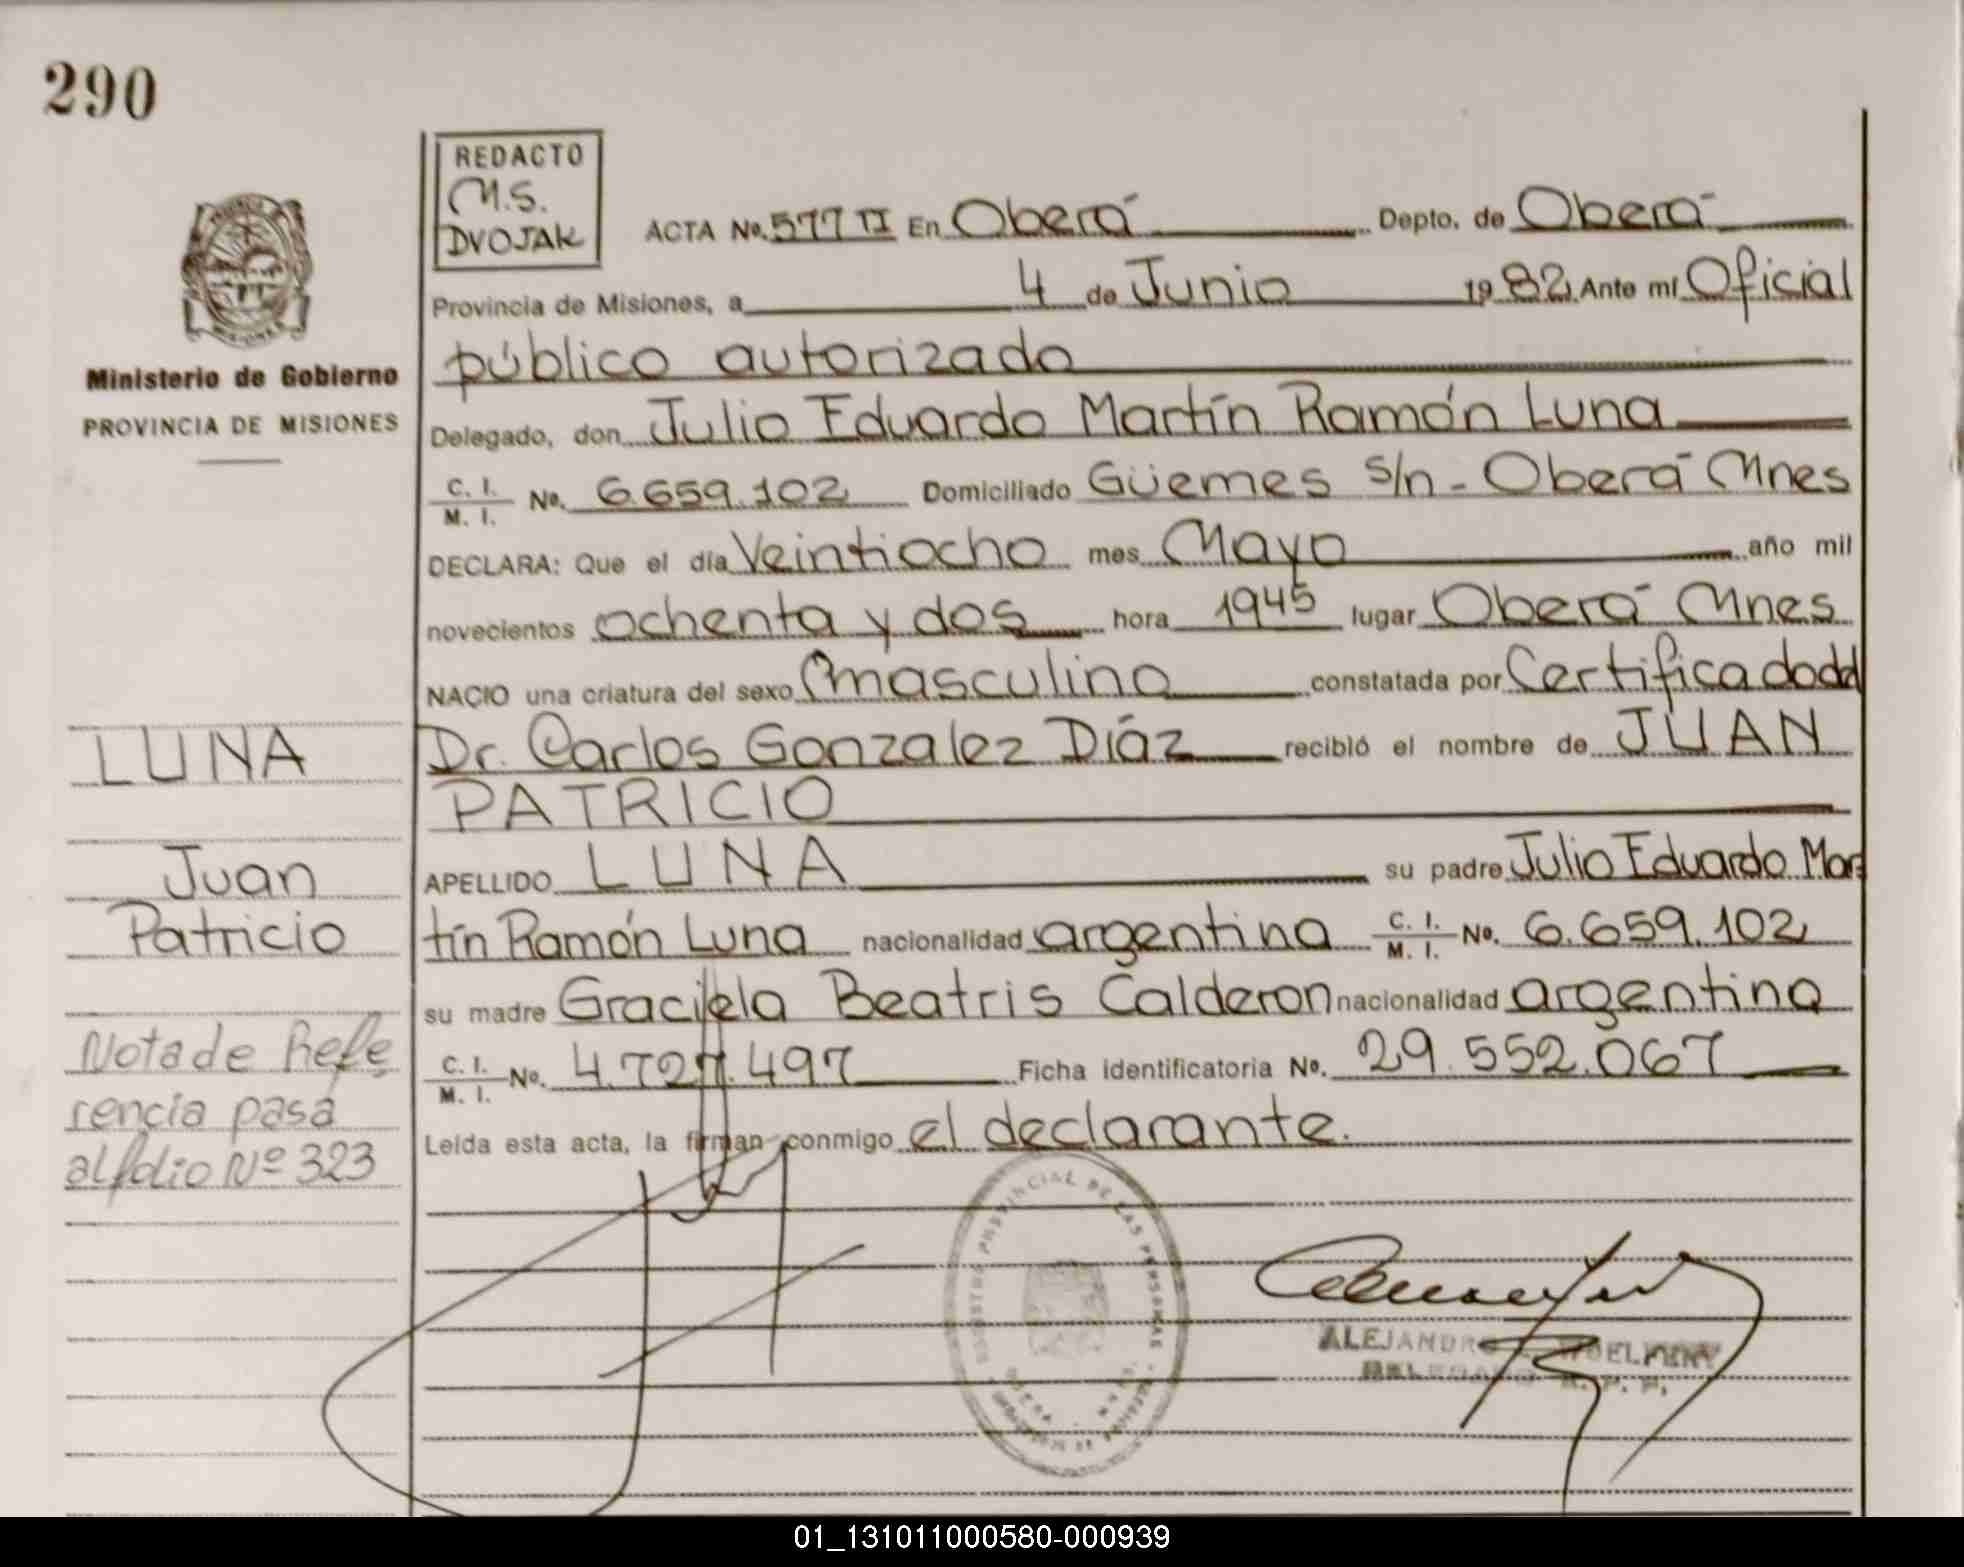 290
REDACTO
M.S.
DVOJAK
ACTA No. 577 II En Oberá Depto. de Oberá
Provincia de Misiones, a 4 de Junio 1982 Ante mí Oficial
público autorizado
Ministerio de Gobierno
PROVINCIA DE MISIONES
Delegado, don Julio Eduardo Martín Ramón Luna
C. I.
M. I. No. 6.659.102 Domiciliado Güemes s/n - Oberá Mnes
DECLARA: Que el día Veintiocho mes Mayo año mil
novecientos ochenta y dos hora 1945 lugar Oberá Mnes
NACIO una criatura del sexo masculino constatada por Certificadodel
Dr. Carlos Gonzalez Díaz recibió el nombre de JUAN
PATRICIO
APELLIDO LUNA su padre Julio Eduardo Mar
tín Ramón Luna nacionalidad argentina C. I.
M. I. No. 6.659.102
su madre Graciela Beatris Calderon nacionalidad argentina
C. I.
M. I. No. 4.727.497 Ficha identificatoria No. 29.552.067
Leída esta acta, la firman conmigo el declarante.
LUNA
Juan
Patricio
Nota de Refe
rencia pasa
al folio Nº 323
REGISTRO PROVINCIAL DE LAS PERSONAS
OBERA
ALEJANDRO
DELEGADO R. P. P.
01_131011000580-000939